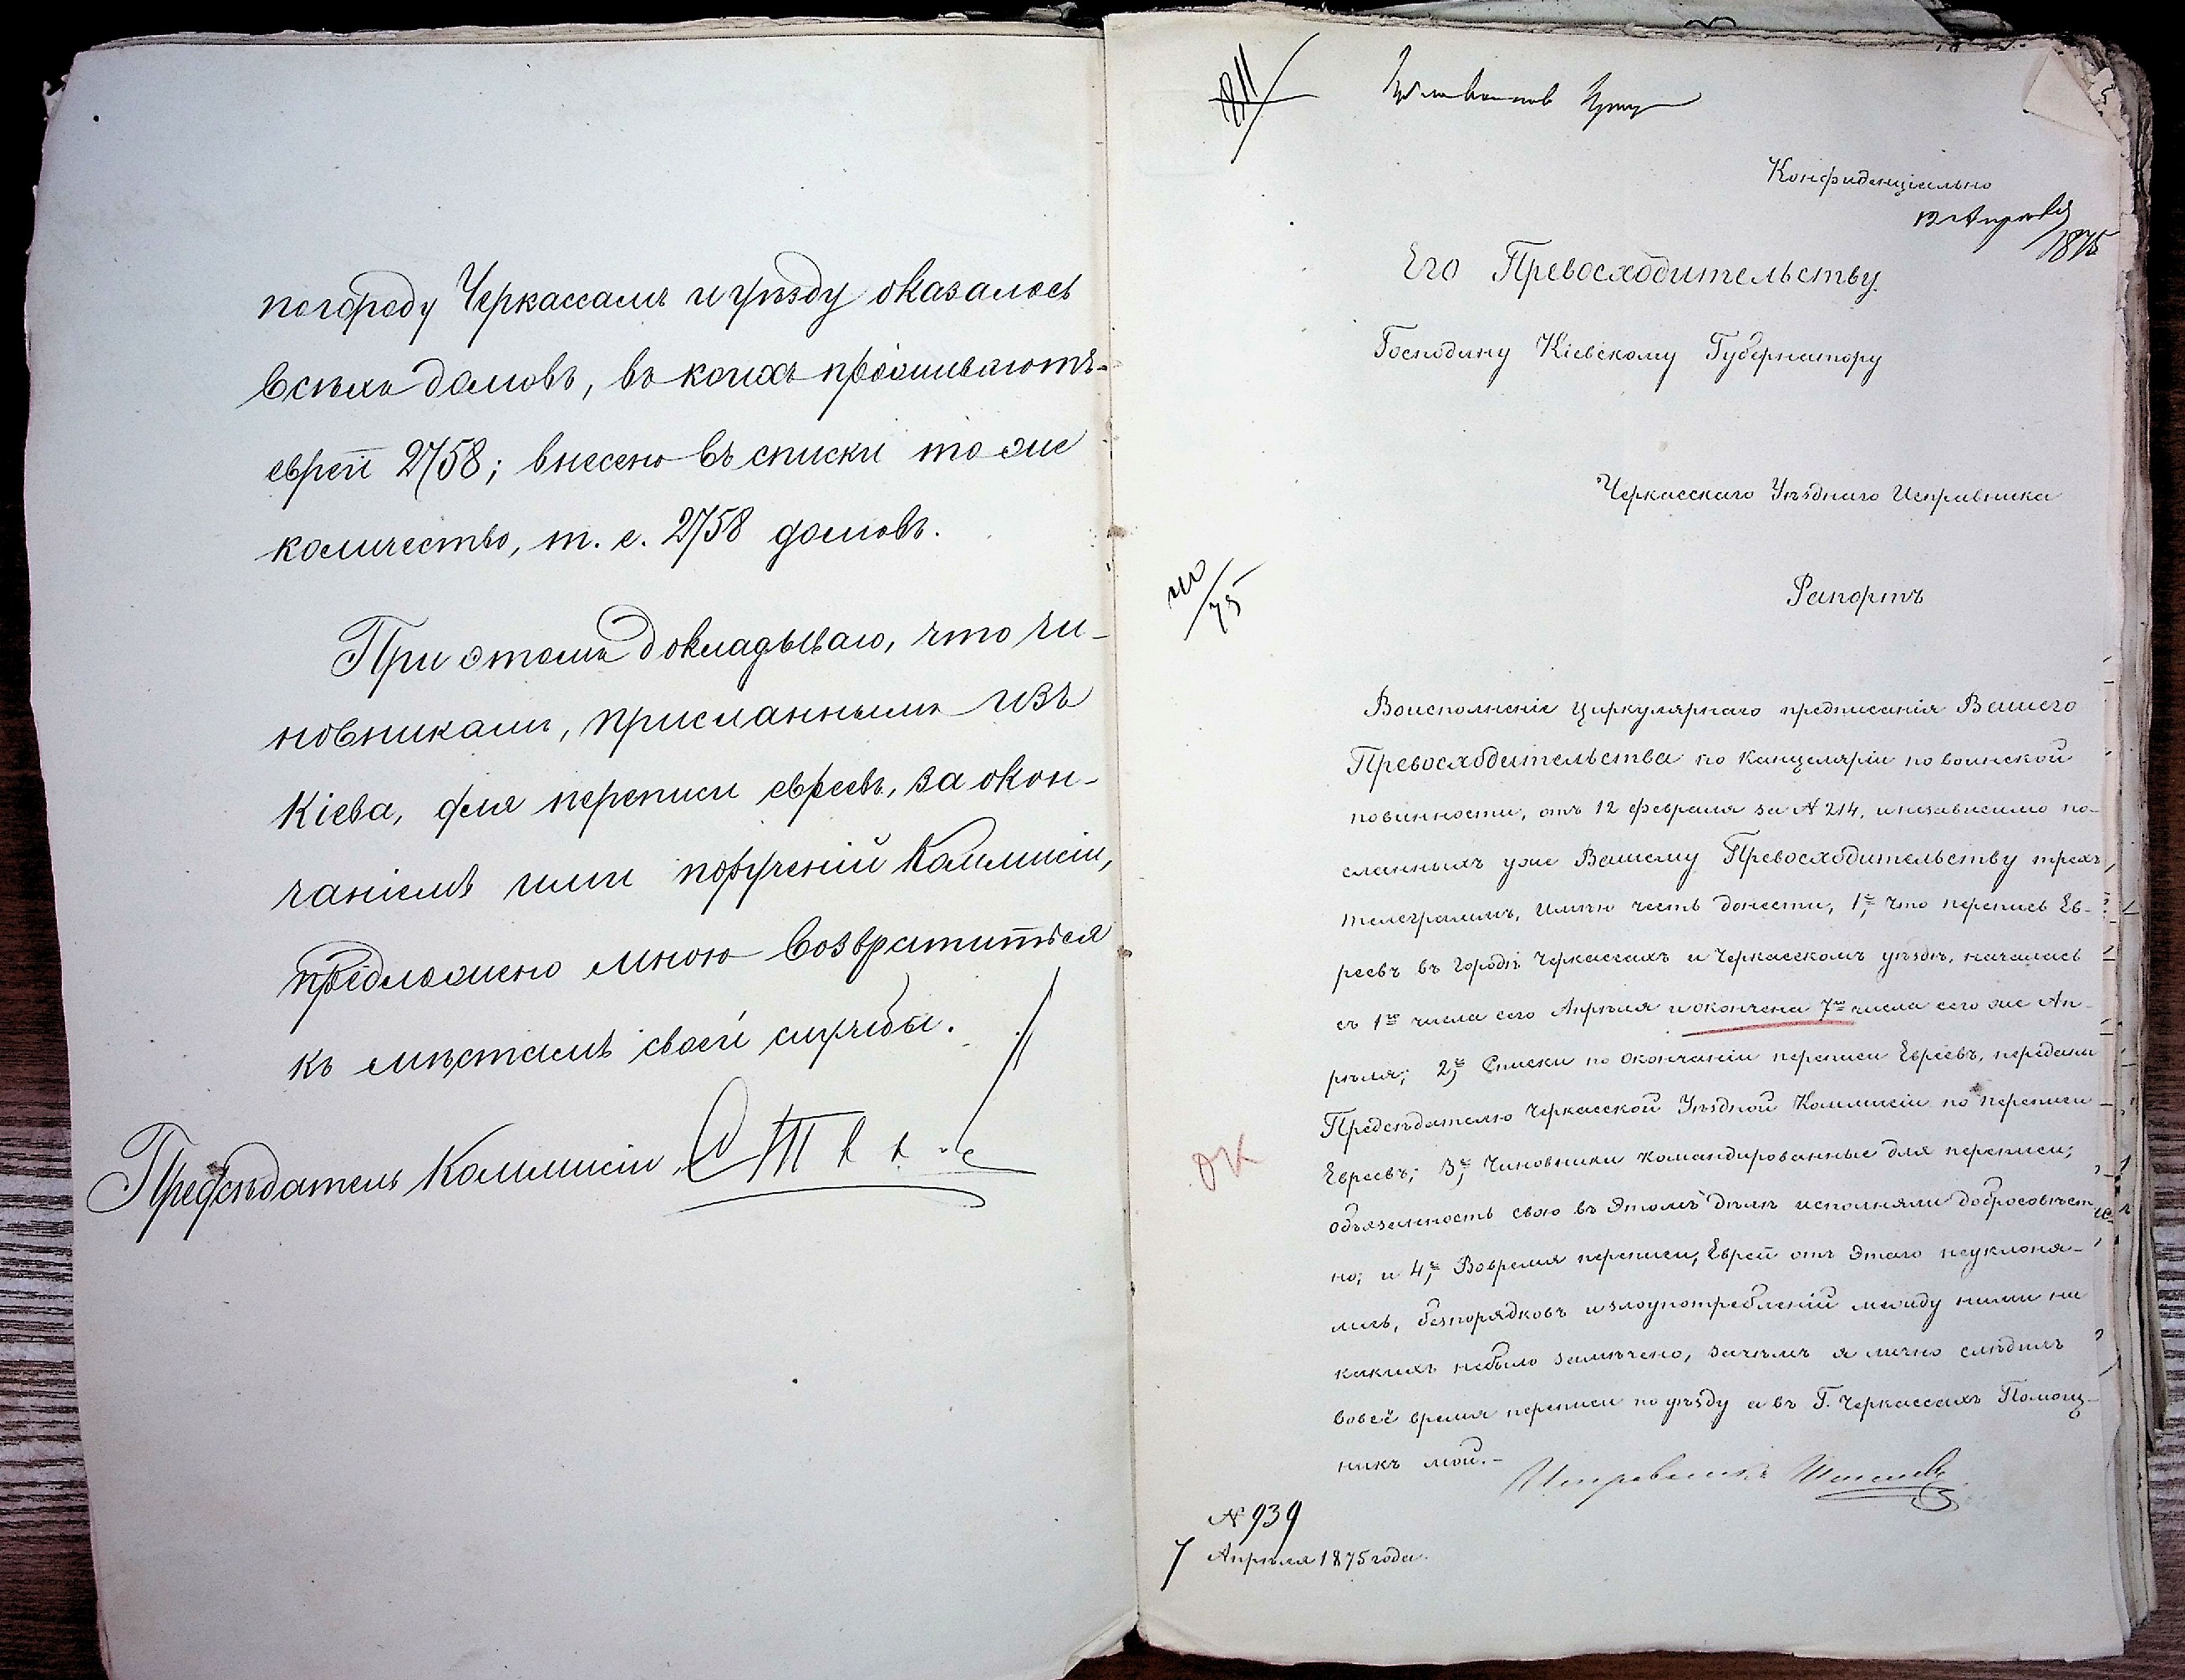 по городу Черкассамъ и уѣзду оказалось
всѣхъ домовъ, въ коихъ проживаютъ
евреи 2758; внесено въ списки то же
количество, т. е. 2758 домовъ.
При этомъ докладываю, что чи-
новникамъ, присланнымъ изъ
Кіева, для переписи евреевъ, за окон-
чаніемъ ими порученій Коммисіи,
предложено мною возвратиться
къ мѣстамъ своей службы.
Предсѣдатель Коммисіи
811
Конфиденціально
12 Апрѣля
1875
Его Превосходительству
Господину Кіевскому Губернатору
Черкасскаго Уѣзднаго Исправника
Рапортъ
75
Воисполненіе циркулярнаго предписанія Вашего
Превосходительства по Канцеляріи по воинской
повинности, отъ 12 февраля за № 214, и независимо по-
сланныхъ уже Вашему Превосходительству трехъ
телеграммъ, имѣю честь донести, 1е, что перепись Ев-
реевъ въ городѣ Черкассахъ и Черкасскомъ уѣздѣ, началась
съ 1го числа сего Апрѣля и окончена 7го числа сего же Ап-
рѣля; 2е, Списки по окончаніи переписи Евреевъ, переданы
Предсѣдателю Черкасской Уѣздной Коммисіи по переписи
Евреевъ; 3е, Чиновники командированные для переписи,
обязанность свою въ этомъ дѣлѣ исполняли добросовѣст
но; и 4е, Вовремя переписи, Евреи отъ этаго неуклоня-
лись, безпорядковъ и злоупотребленій между ними ни
какихъ небыло замѣчено, зачѣмъ я лично слѣдилъ
вовсё время переписи по уѣзду а въ Г. Черкассахъ Помощ-
никъ мой.-
Исправникъ
№ 939
7 Апрѣля 1875 года.